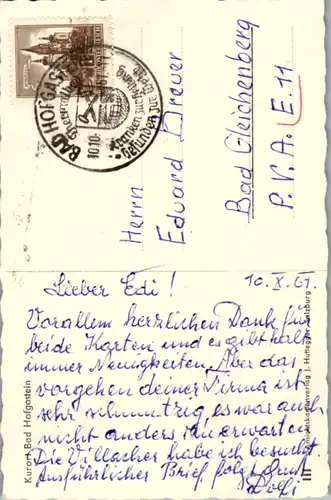 BAD HOFGASTEIN
10.10.61
Kranken zur Heilung
Gesunden zur Erholung
Herrn
Eduard Dreyer
Bad Gleichenberg
P.V.A. E.11
Kurort Bad Hofgastein
10.X.61.
Lieber Edi!
Vor allem herzlichen Dank für
beide Karten und es gibt halt
immer Neuigkeiten. Aber das
vorgehen deiner Firma ist
sehr schmutzig, es war auch
nicht anders zu erwarten.
Die Villacher habe ich besucht.
Ausführlicher Brief folgt
Dolfi